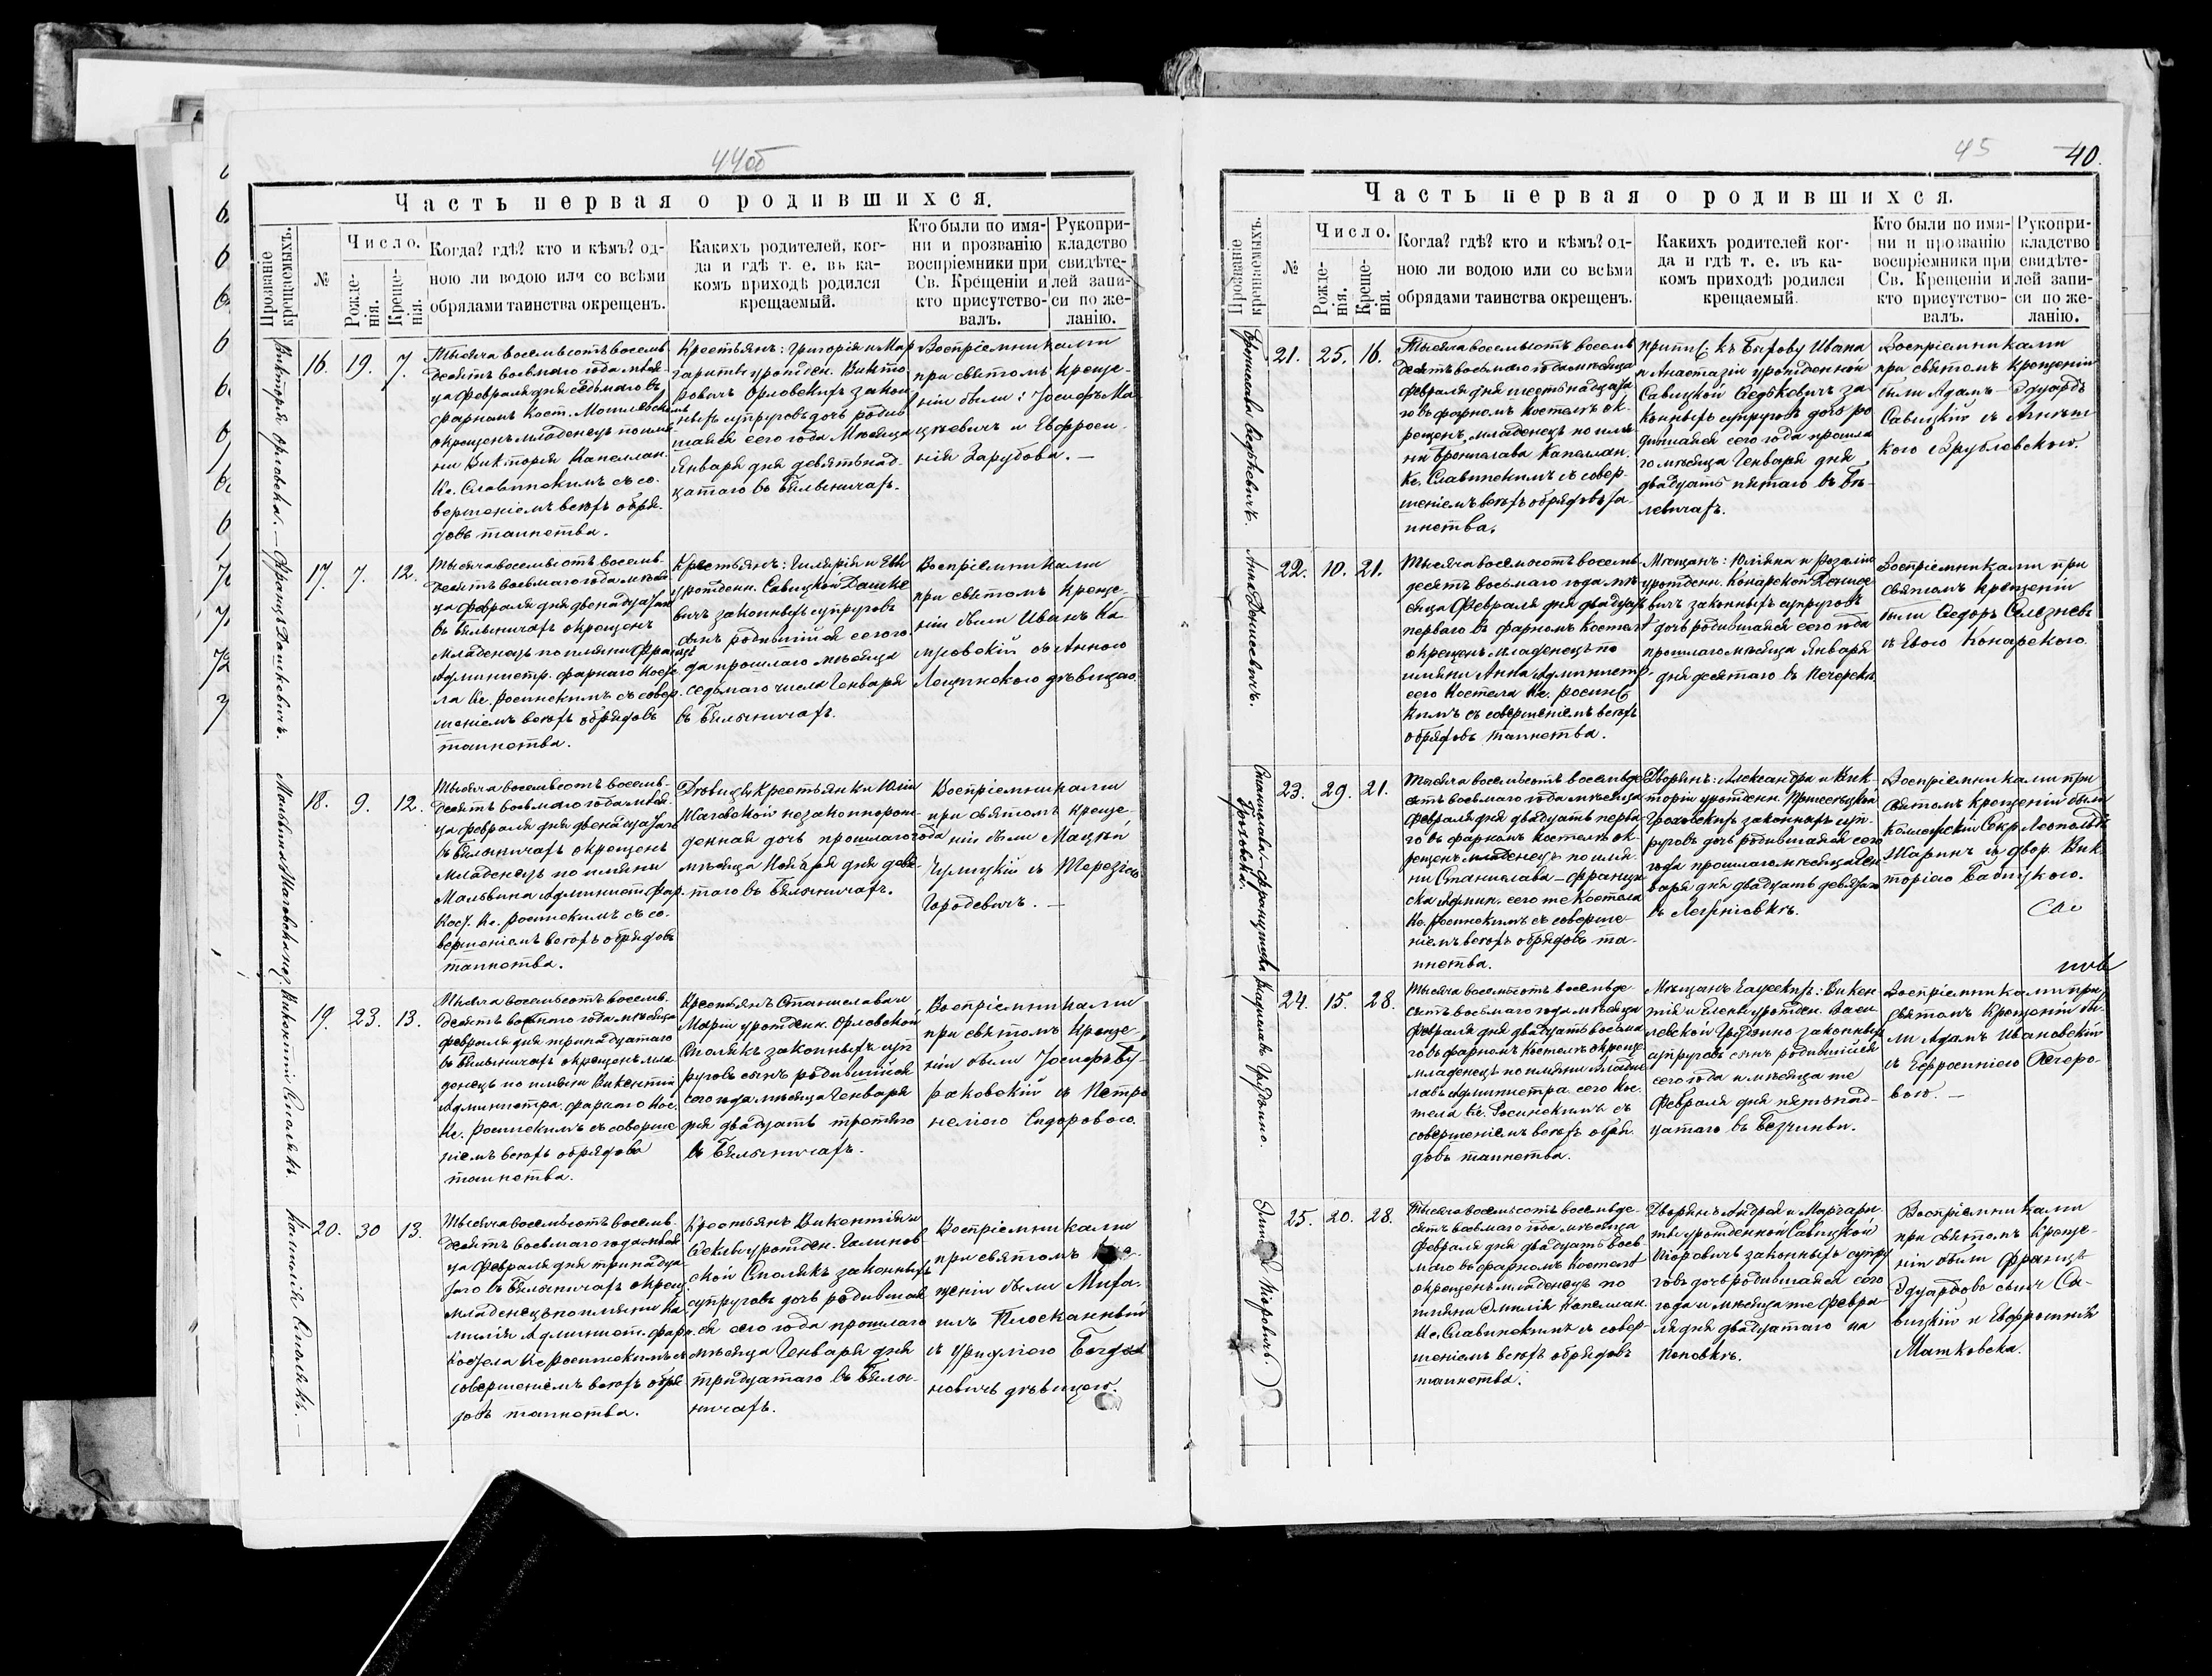 44об
Часть первая о родившихся.
Прозваніе крещаемыхъ.
№
Число.
Рожде-
нія.
Креще-
нія.
Когда? гдѣ? кто и кѣмъ? од-
ною ли водою или со всѣми
обрядами таинства окрещенъ.
Какихъ родителей, ког-
да и гдѣ т. е. въ ка-
комъ приходѣ родился
крещаемый.
Кто были по имя-
ни и прозванію
воспріемники при
Св. Крещеніи и
кто присутство-
валъ.
Рукопри-
кладство
свидѣте-
лей запи-
си по же-
ланію.
Викторія Орловска.
16. 19. 7.
Тысяча восемьсотъ восемь
десятъ восьмаго года мѣся-
ца Февраля дня седьмаго въ
фарномъ Кост. Могилевскомъ
окрещенъ младенецъ по имя-
ни Викторія Капеллан.
Кс. Славинскимъ съ со-
вершеніемъ всѣхъ обря-
довъ таинства.
Крестьянъ: Григорія и Мар
гариты урожден. Викто
ровичъ Орловскихъ закон
ныхъ супруговъ дочь родив
шаяся сего года Мѣсяца
Января дня девятьнад-
цатаго въ Бялыничахъ.
Воспріемниками
при святомъ Креще-
ніи были: Іосифъ Ма
цкевичъ и Евфроси-
нія Зарубова. —
Францъ Дашкевичъ.
17. 7. 12.
Тысяча восемьсотъ восемь-
десятъ восьмаго года мѣся
ца Февраля дня двенадцатаго
въ Бялыничахъ окрещенъ
младенецъ по имяни Францъ
Администр. фарнаго Косте
ла Кс. Росинскимъ съ совер-
шеніемъ всѣхъ обрядовъ
таинства.
Крестьянъ: Гилярія и Евы
урожден. Савицкой Дашке
вичъ законныхъ супруговъ
сынъ родившійся сего го-
да прошлаго мѣсяца
седьмаго числа Генваря
въ Бялыничахъ.
Воспріемниками
при святомъ Креще-
ніи были Иванъ Ка
мровскій съ Анною
Лещинскою дѣвицею.
18. 9. 12.
Тысяча восемьсотъ восемь-
десятъ восьмаго года мѣся-
ца Февраля дня двенадцатаго
въ Бялыничахъ окрещенъ
младенецъ по имяни
Мальвина Админист. Фар.
Кост. Кс. Росинскимъ съ со-
вершеніемъ всѣхъ обрядовъ
таинства.
Дѣвицы Крестьянки Юліи
незаконнорож-
денная дочь прошлаго года
мѣсяца Ноября дня девя-
таго въ Бялыничахъ.
Воспріемниками
при святомъ Креще-
ніи были Мацѣй
съ Терезіею
Городевичъ. —
Викентій Смолякъ.
19. 23. 13.
Тысяча восемьсотъ восемь-
десятъ восьмаго года мѣсяца
Февраля дня тринадцатаго
въ Бялыничахъ окрещенъ мла
денецъ по имяни Викентій
Администра. фарнаго Кос.
Кс. Росинскимъ съ соверше
ніемъ всѣхъ обрядовъ
таинства.
Крестьянъ Станислава и
Маріи урожден. Орловской
Смолякъ законныхъ суп
руговъ сынъ родившійся
сего года мѣсяца Генваря
дня двадцать третяго
въ Бялыничахъ.
Воспріемниками
при святомъ Креще
ніи были Іосифъ Бу
раковскій съ Петро
нелією Сидоровою.
Камилія Смолякъ. —
20. 30 13.
Тысяча восемьсотъ восемь-
десятъ восьмаго года мѣся
ца Февраля дня тринадца
таго въ Бялыничахъ окрещ
младенецъ по имяни Ка
милія Админист. фар.
Костела Кс Росинскимъ съ
совершеніемъ всѣхъ обря
довъ таинства.
Крестьянъ Викентія и
Феклы урожден. Галинов
ской Смолякъ законныхъ
супруговъ дочь родившая
ся сего года прошлаго
мѣсяца Генваря дня
тридцатаго въ Бялы-
ничахъ.
Воспріемниками
при святомъ Кре
щеніи были Миха-
илъ
съ Богда
новичъ дѣвицею.
45 40.
Часть первая о родившихся.
Прозваніе крещаемыхъ.
№
Число.
Рожде-
нія.
Креще-
нія.
Когда? гдѣ? кто и кѣмъ? од-
ною ли водою или со всѣми
обрядами таинства окрещенъ.
Какихъ родителей ког-
да и гдѣ т. е. въ ка-
комъ приходѣ родился
крещаемый.
Кто были по имя-
ни и прозванію
воспріемники при
Св. Крещеніи и
кто присутство-
валъ.
Рукопри-
кладство
свидѣте-
лей запи-
си по же-
ланію.
Бронислава Федьковичъ.
21. 25. 16.
Тысяча восемьсотъ восемь
десятъ восьмаго года мѣсяца
Февраля дня шестьнадцата
го въ фарномъ Костелѣ ок-
рещенъ младенецъ по имя
ни Бронислава Капеллан.
Кс. Славинскимъ съ совер-
шеніемъ всѣхъ обрядовъ та
инства.
припис. къ Быхову Ивана
и Анастазіи урожденной
Савицкой Федьковичъ за
конныхъ супруговъ дочь ро
дившаяся сего года прошла
го мѣсяца Генваря дня
двадцать пятаго въ Бя-
левичахъ.
Воспріемниками
при святомъ Крещеніи
были Адамъ-Эдуардъ
Савицкій съ
кою Врублевскою.
Анна Денисевичъ.
22. 10. 21.
Тысяча восемьсотъ восемь
десятъ восьмаго года мѣ
сяца Февраля дня двадцать
перваго въ фарномъ Костел
окрещенъ младенецъ по
имяни Анна Администр.
сего Костела Кс. Росинс
кимъ съ совершеніемъ всѣхъ
обрядовъ таинства.
Мѣщанъ: Юліяна и Розаліи
урожденн. Конарской Денисе
вичъ законныхъ супруговъ
дочь родившаяся сего года
прошлаго мѣсяца Января
дня десятаго въ Печерскѣ.
Воспріемниками при
святомъ крещеніи
были Федоръ Селезневъ
съ Евою Конарскою.
Станислава-Франциска Гроховска.
23. 29. 21.
Тысяча восемьсотъ восемьде
сятъ восьмаго года мѣсяца
Февраля дня двадцать перва
го въ фарномъ Костелѣ ок-
рещенъ младенецъ по имя-
ни Станислава-Францис
ка Админ. сего же Костела
Кс. Росинскимъ съ соверше-
ніемъ всѣхъ обрядовъ та-
инства.
Дворянъ: Александра и Вик-
торіи урожденн.
Гроховскихъ законныхъ суп-
руговъ дочь родившаяся сего
года прошлаго мѣсяца Ген
варя дня двадцать девятаго
въ
Воспріемниками при
Святомъ Крещеніи были
Коллежскій Секр. Леопольдъ
Жаринъ и двор. Вик
торіею
Владиславъ Грудзино.
24. 15. 28.
Тысяча восемьсотъ восемьде-
сятъ восьмаго года мѣсяца
Февраля дня двадцать восьма
го въ фарномъ Костелѣ окреще
младенецъ по имяни Влади
славъ Администра. сего Кос-
тела Кс. Росинскимъ съ
совершеніемъ всѣхъ обря-
довъ таинства.
Мѣщанъ Викен
тія и Елены урожден. Васи
левской Грудзино законныхъ
супруговъ сынъ родившійся
сего года и мѣсяца же
Февраля дня пятьнад-
цатаго въ
Воспріемниками при
Святомъ Крещеніи бы-
ли Адамъ Ивановскій
съ Ефросиніею
вою. —
25. 20. 28.
Тысяча восемьсотъ восемьде-
сятъ восьмаго года мѣсяца
Февраля дня двадцать вось
маго въ фарномъ Костелѣ
окрещенъ младенецъ по
имяни Эмилія Капеллан.
Кс. Славинскимъ съ совер-
шеніемъ всѣхъ обрядовъ
таинства.
Дворянъ Андрея и Маргари-
ты урожденной Савицкой
законныхъ супру
говъ дочь родившаяся сего
года и мѣсяца же Февра
ля дня двадцатаго на
Поповкѣ.
Воспріемниками
при святомъ Креще-
ніи были Францъ
Эдуардовъ сынъ Са-
вицкій и Евфросинія
Машковска.